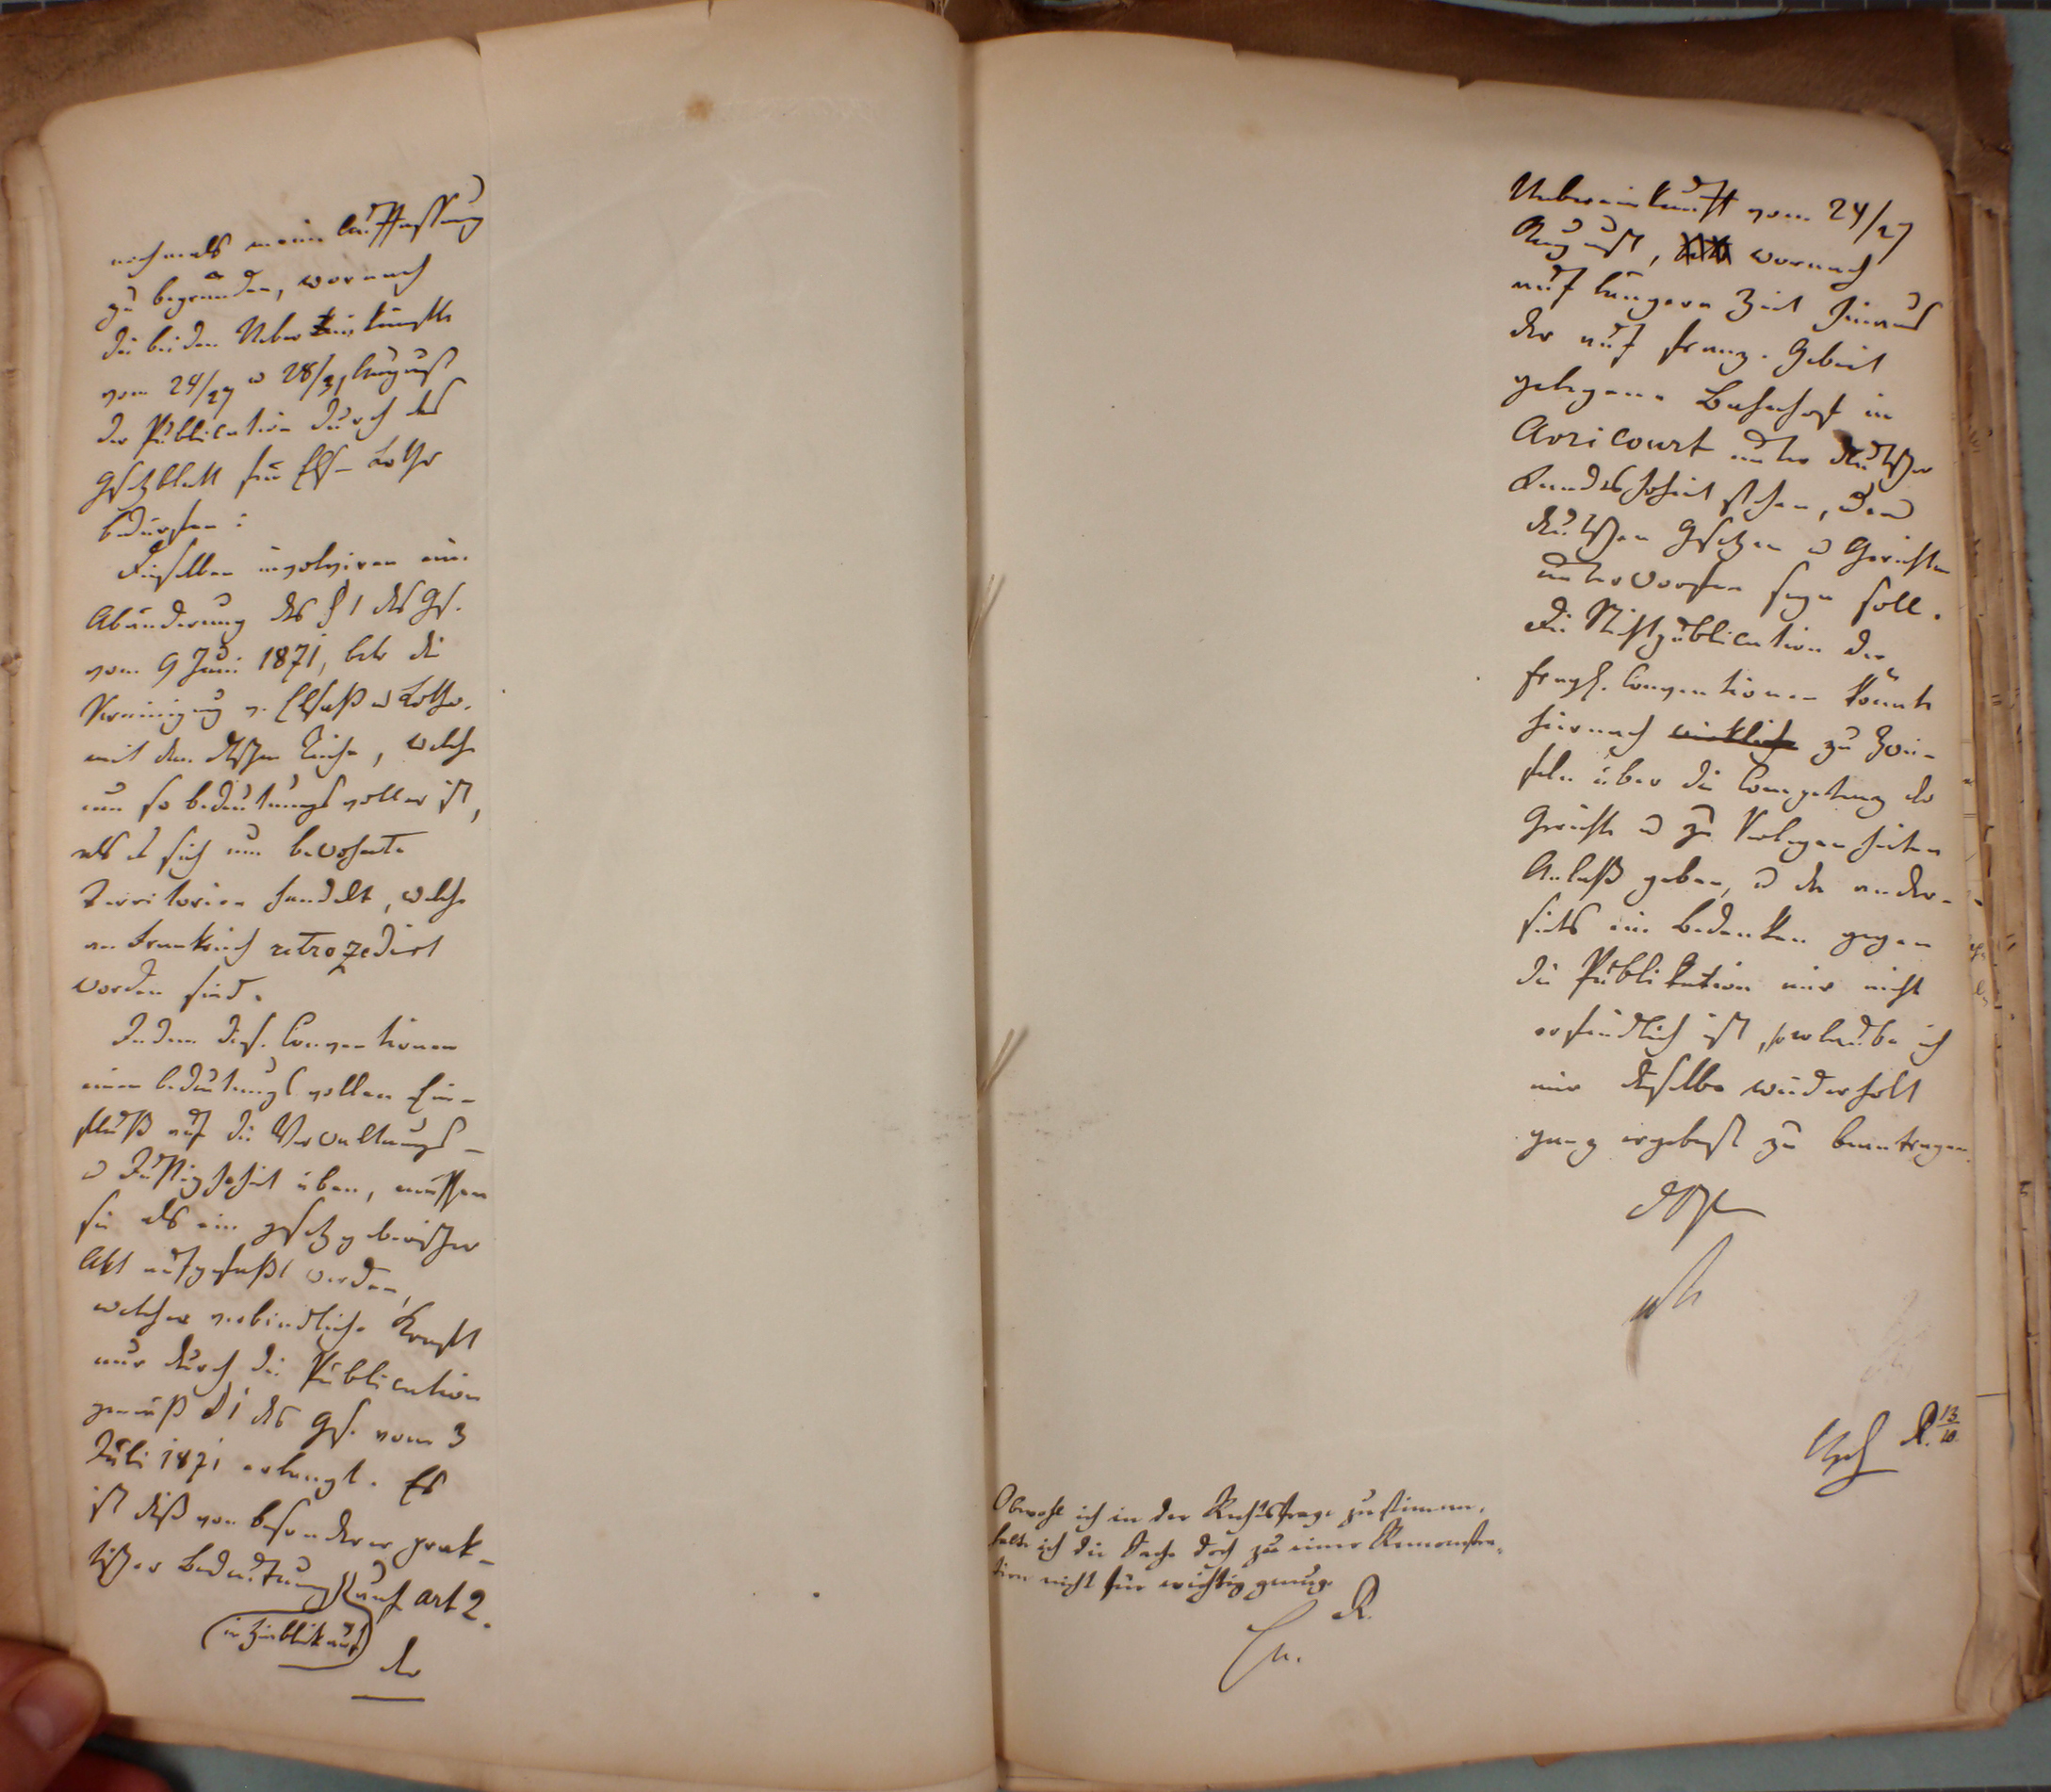 nochmals meine Auffassung
zu begründen, wornach
die beiden Uebereinkünfte
vom 24/27 u 28/31 August
der Publication durch das
Gesetzblatt für Els-Lothr
bedürfen:
Dieselben involviren eine
Abänderung des § 1 des Gs.
vom 9 Juni 1871, betr die
Vereinigung v. Elsaß u Lothr.
mit dem dtschen Reiche, welche
um so bedeutungsvoller ist,
als es sich um bewohnte
Territorien handelt, welche
an Frankreich retrozedirt
worden sind.
Indem dies. Conventionen
einen bedeutungsvollen Ein-
fluß auf die Verwaltungs-
u Justizhoheit üben, müssen
sie als ein gesetzgeberischer
Akt aufgefaßt werden,
welcher verbindliche Kraft
nur durch die Publication
gemäß § 1 des Gs. vom 3
Juli 1871 erlangt. Es
ist dieß von besonderer prak-
tischer Bedeutung auf art 2.
(in Hinblick auf)
der
Uebereinkunft vom 24/27
August, wornach
auf längere Zeit hinaus
der auf franz. Gebiet
gelegene Bahnhof in
Avricourt unter deutscher
Landeshoheit stehen, den
deutschen Gesetzen u Gerichten
unterworfen seyn soll.
Die Nichtpublication der
fragl. Conventionen könnte
hiernach wirklich zu Zwei-
feln über die Competenz der
Gerichte u zu Verlegenheiten
Anlaß geben, u da ander-
seits ein Bedenken gegen
die Publikation mir nicht
erfindlich ist, so erlaube ich
mir dieselbe wiederholt
ganz ergebenst zu beantragen.
Obwohl ich in der Rechtsfrage zustimme,
halte ich die Sache doch zu einer Remonstra-
tion nicht für wichtig genug.
R.
R. 13/10.